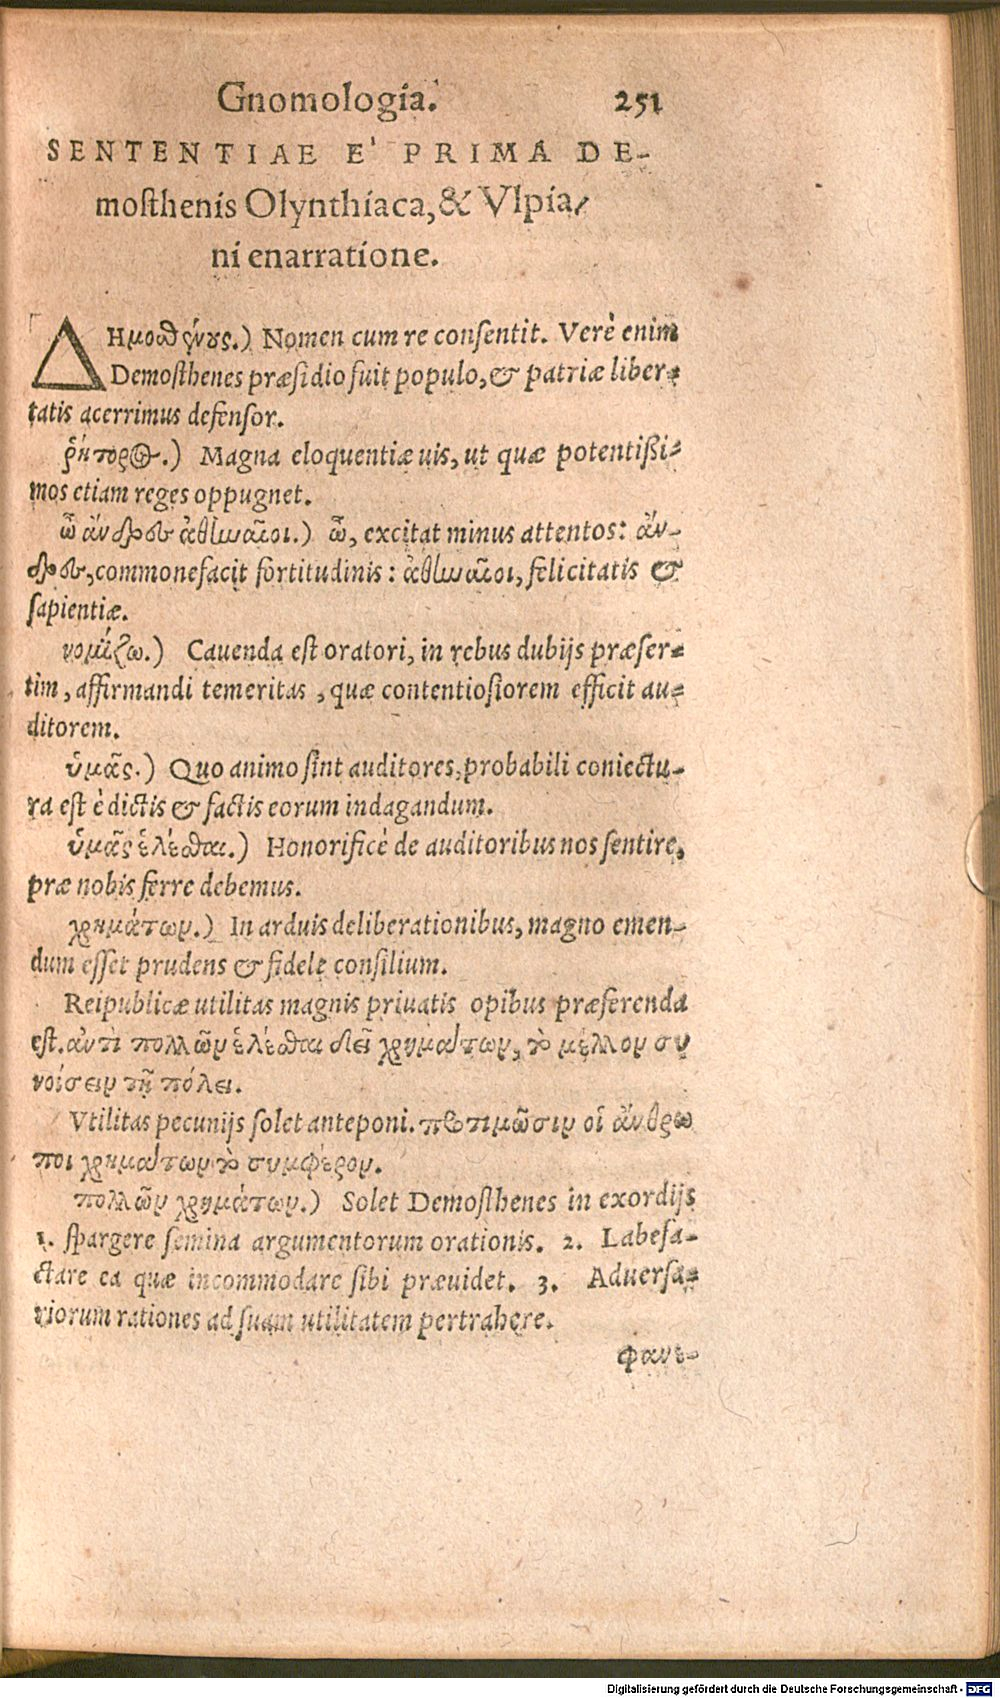 Gnomologia. 251
SENTENTIAE E' PRIMA DE-
mosthenis Olynthiaca, & Vlpia-
ni enarratione.
ΔΗμοσθένους.) Nomen cum re consentit. Verè enim
Demosthenes præsidio fuit populo, & patriæ liber-
tatis acerrimus defensor.
ῥήτορος.) Magna eloquentiæ uis, ut quæ potentißi-
mos etiam reges oppugnet.
ὦ ἄνδρες ἀθηναῖοι.) ὦ, excitat minus attentos: ἄν-
δρες, commonefacit fortitudinis: ἀθηναῖοι, felicitatis &
sapientiæ.
νομίζω.) Cauenda est oratori, in rebus dubijs præser-
tim, affirmandi temeritas, quæ contentiosiorem efficit au-
ditorem.
ὑμᾶς.) Quo animo sint auditores, probabili coniectu-
ra est è dictis & factis eorum indagandum.
ὑμᾶς ἑλέσθαι.) Honorificè de auditoribus nos sentire,
præ nobis ferre debemus.
χρημάτων.) In arduis deliberationibus, magno emen-
dum esset prudens & fidele consilium.
Reipublicæ utilitas magnis priuatis opibus præferenda
est. ἀντὶ πολλῶν ἑλέσθαι δεῖ χρημάτων, τὸ μέλλον συ
νοίσειν τῇ πόλει.
Vtilitas pecunijs solet anteponi. προτιμῶσιν οἱ ἄνθρω
ποι χρημάτων τὸ συμφέρον.
πολλῶν χρημάτων.) Solet Demosthenes in exordijs
1. spargere semina argumentorum orationis. 2. Labefa-
ctare ea quæ incommodare sibi præuidet. 3. Aduersa-
riorum rationes ad suam utilitatem pertrahere.
φανε-
Digitalisierung gefördert durch die Deutsche Forschungsgemeinschaft - DFG